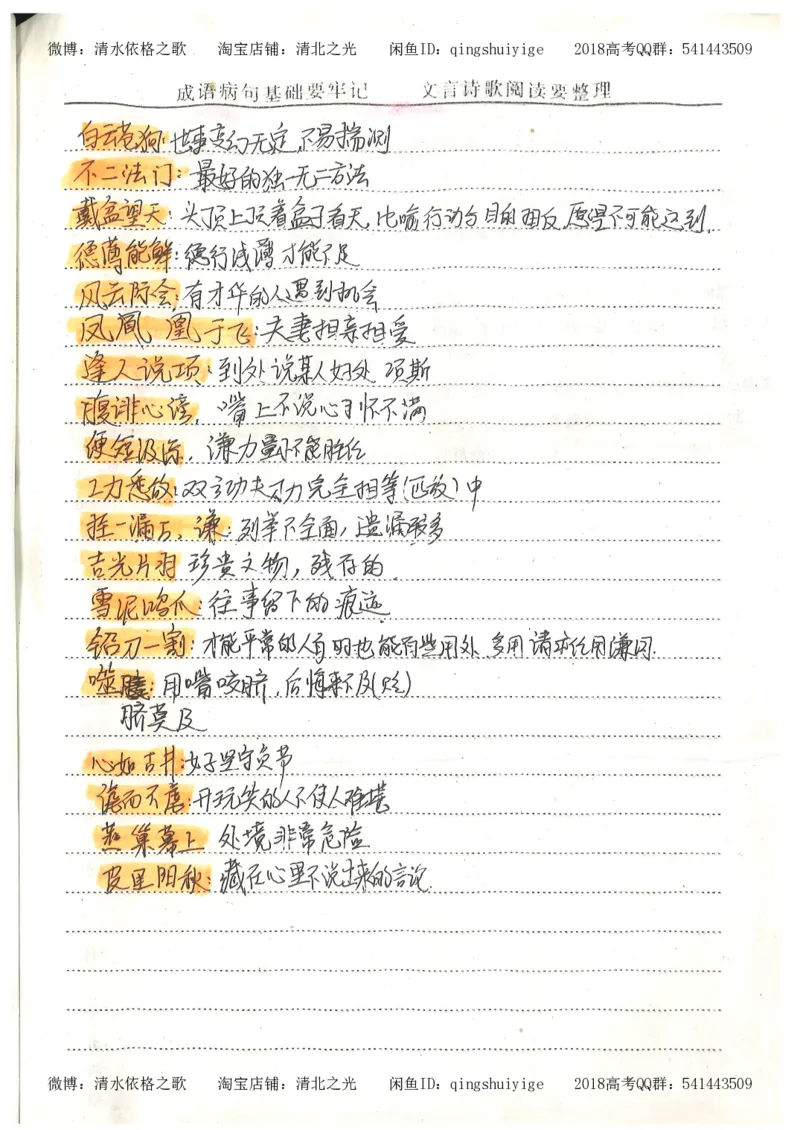 微博：清水依格之歌 淘宝店铺：清北之光 闲鱼ID：qingshuiyige 2018高考QQ群：541443509
成语病句基础要牢记 文言诗歌阅读要整理
白云苍狗：世事变幻无定，不易揣测
不二法门：最好的独一无二方法
戴盆望天：头顶上顶着盆子看天，比喻行动与目的相反，愿望不可能达到．
德薄能鲜：德行浅薄才能不足
风云际会：有才华的人遇到机会
凤凰于飞：夫妻相亲相爱
逢人说项：到处说某人好处 项斯
腹诽心谤，嘴上不说心中怀不满
绠短汲深，谦力量小不能胜任
工力悉敌：双方功夫力完全相等(匹敌)中
挂一漏万、谦：列举不全面，遗漏很多
吉光片羽 珍贵文物，残存的
雪泥鸿爪：往事留下的痕迹
铅刀一割：才能平常的人有时也能有些用处 多用请求任用谦词．
噬脐：用嘴咬脐，后悔来不及(贬)
脐莫及
心如古井：女子坚守贞节
谑而不虐：开玩笑的人不使人难堪
燕巢幕上 处境非常危险
皮里阳秋：藏在心里不说出来的言论
微博：清水依格之歌 淘宝店铺：清北之光 闲鱼ID：qingshuiyige 2018高考QQ群：541443509